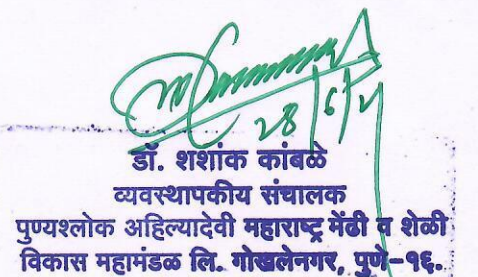 28/6/21
डॉ. शशांक कांबळे
व्यवस्थापकीय संचालक
पुण्यश्लोक अहिल्यादेवी महाराष्ट्र मेंढी व शेळी
विकास महामंडळ लि. गोखलेनगर, पुणे-१६.